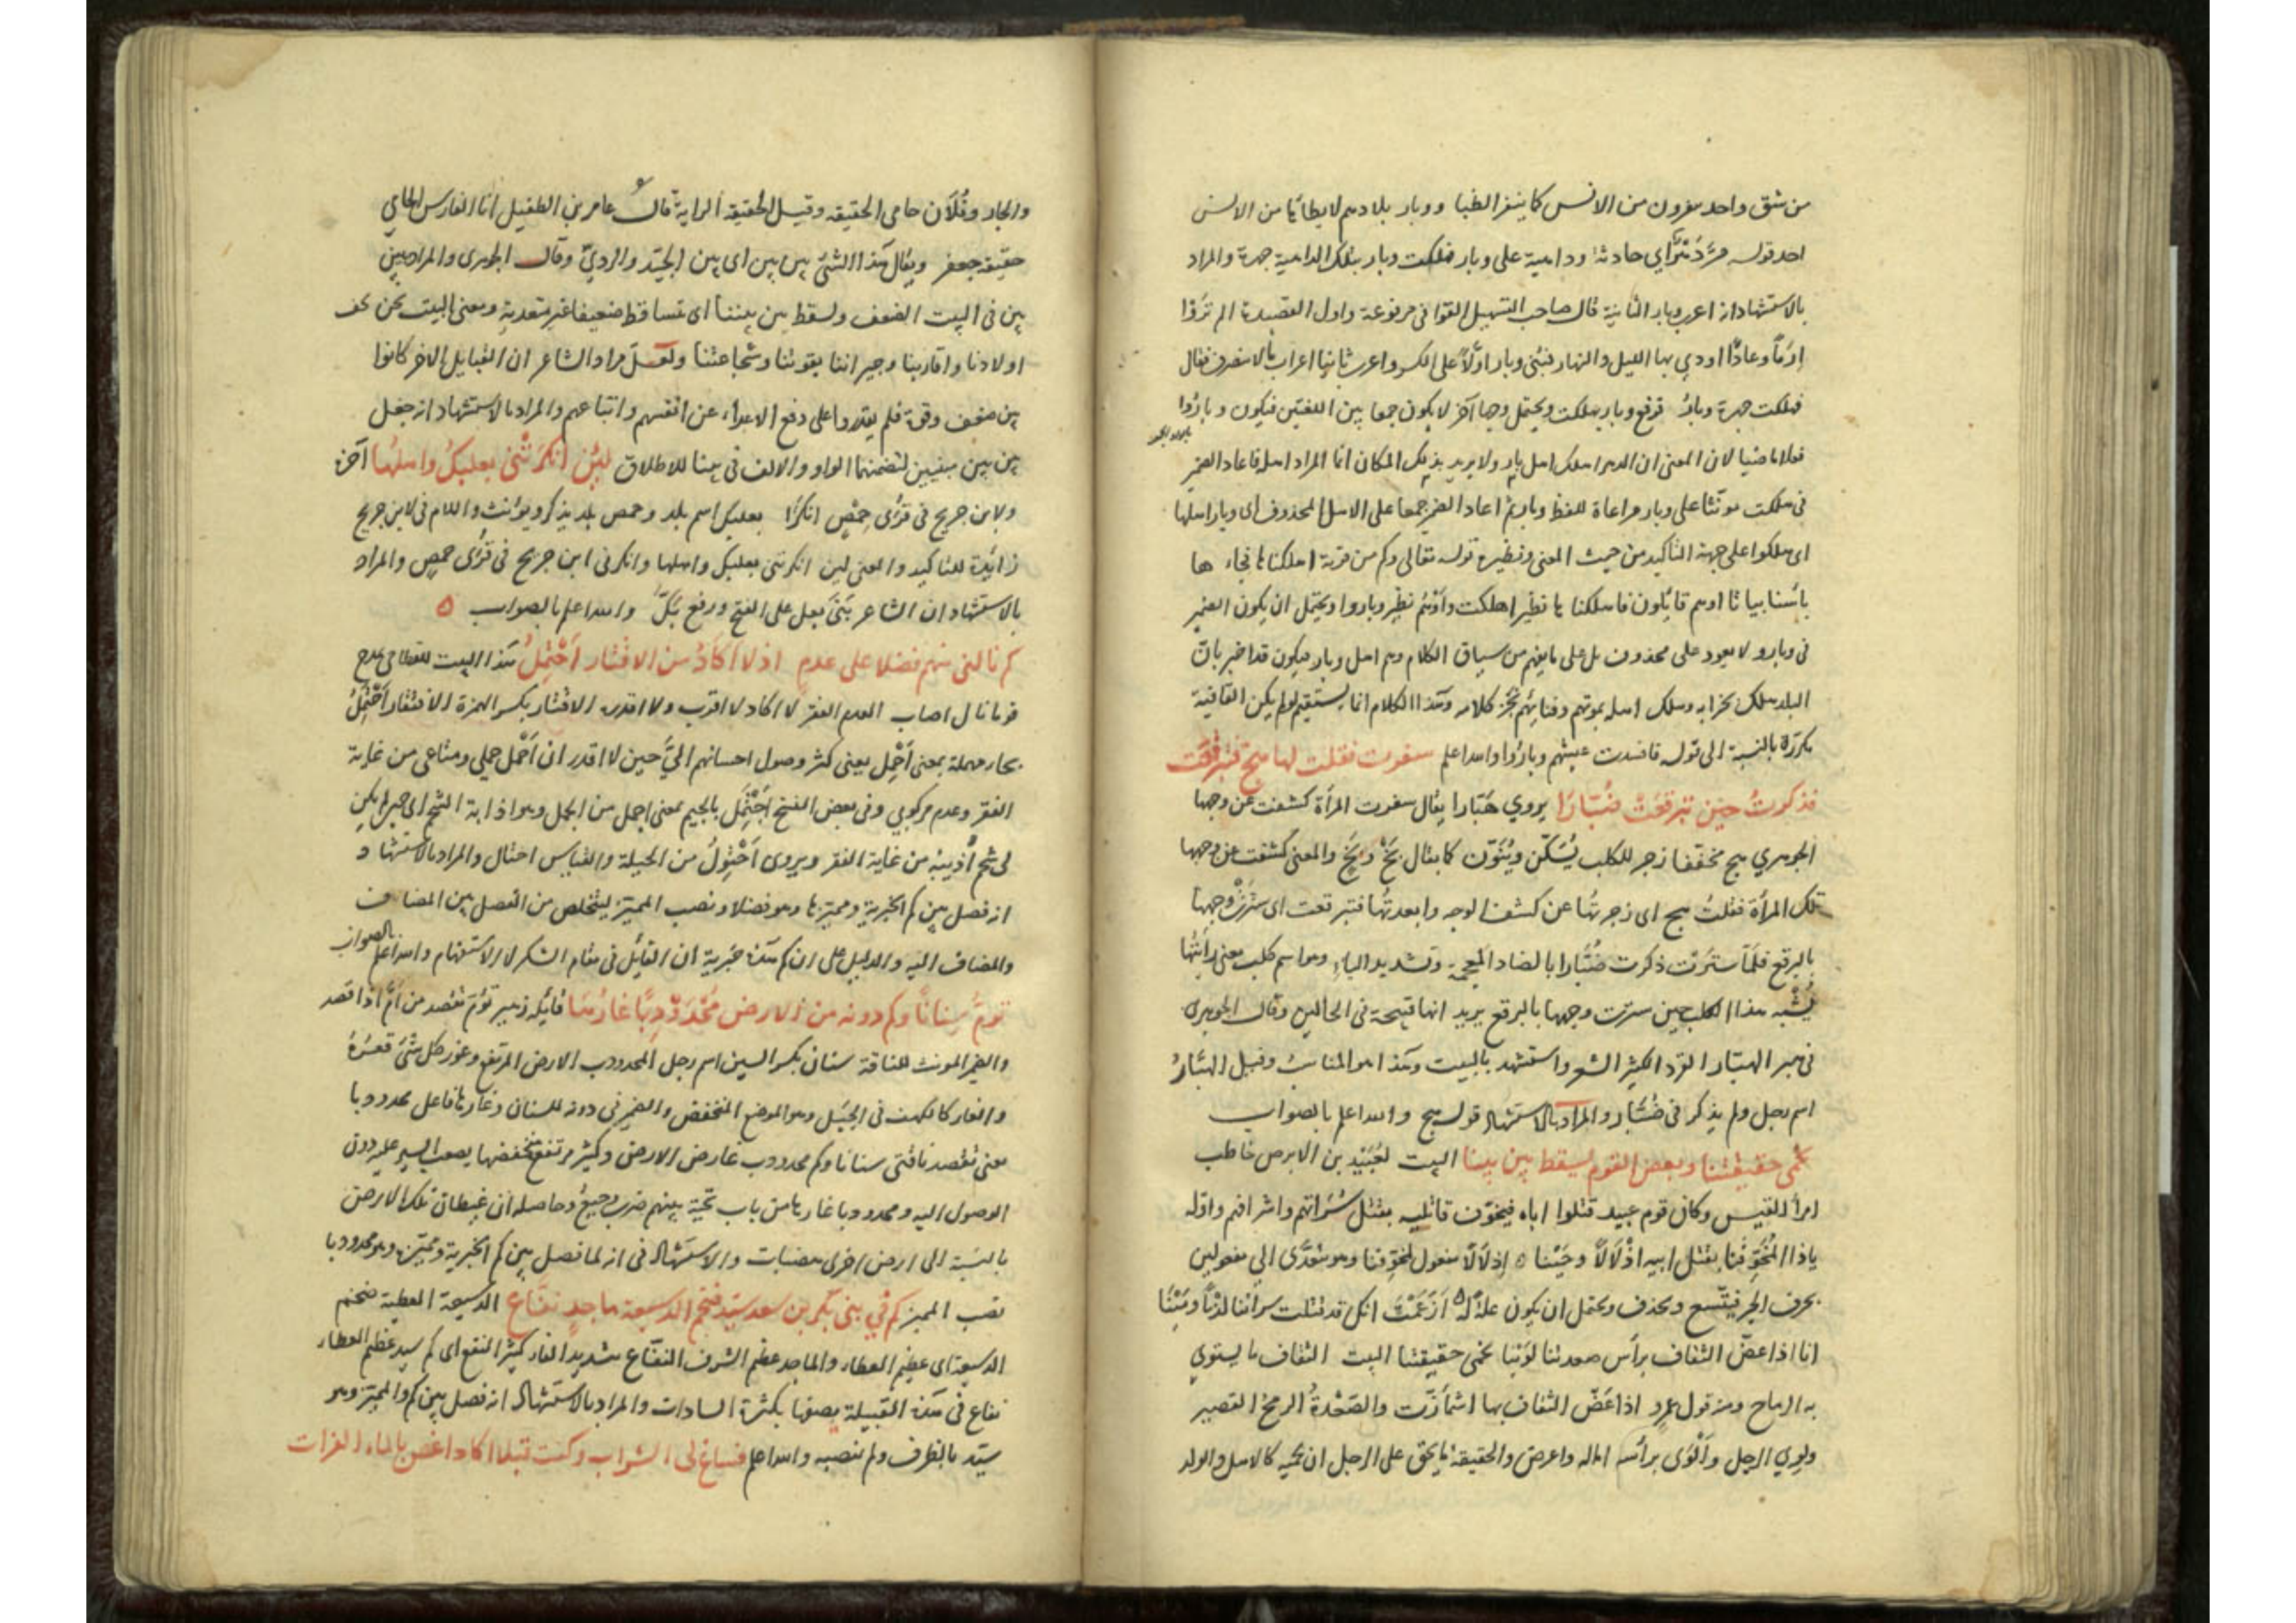 من شق واحد ينفرون من الانس كما ينفر الظبا ووبار بلادهم لا يطائها من الانس
احد قوله مرّ دَهْرٌ اي حادثة وداهية على وبار فهلكت وبار بتلك الداهية جهرة والمراد
بالاستشهاد انه اعرب وبار الثانية قال صاحب التسهيل القوافى مرفوعة واول القصيدة الم تروا
إرَماً وعادًا اودي بها الليل والنهار فبنى وبار اوّلاً على الكسر واعرب ثانيا اعراب ما لا ينصرف فقال
فهلكت جهرة وبارُ فرفع وبار بهلكت ويحتمل وجها آخر لا يكون جمعا بين اللغتين فيكون وباروا
فعلا ماضيا لان المعنى ان الدهر اهلك اهل بار ولا يريد بذلك المكان انما المراد اهله فاعاد الضمير
فى هلكت مونثا على وبار مراعاة للفظ وبار ثم اعاد الضمير جمعا على الاهل المحذوف اى وبار اهلها
اى هلكوا على جهة التأكيد من حيث المعنى ونظيره قوله تعالى وكم من قرية اهلكناها فجاءها
باسنا بياتا اوهم قايلون فاهلكناها نظير اهلكت واوهم نظير وباروا ويحتمل ان يكون الضمير
فى وبارو لا يعود على محذوف بل على ما يفهم من سياق الكلام وهم اهل وبار فيكون قد اخبر بان
البلد هلك بخرابه وهلك اهله بموتهم وفنائهم نجز كلامه وهذا الكلام انما يستقيم لو لم يكن القافية
مكررة بالنسبة الى قوله فافسدت عيشهم وباروا والله اعلم سفرت فقلت لها هج فتبرقعت
فذكرتُ حين تبرقعَتْ ضُبّارَا يروي هَبّارا يقال سفرت المرأة كشفت عن وجهها
الجوهري هج مخففا زجر للكلب يُسَكّن ويُنَوّن كما يقال بَخْ وبَخٍ والمعنى كشفت عن وجهها
تلك المرأة فقلتُ هج اى زجرتُها عن كشف الوجه وابعدتُها فتبرقعت اى سترَتْ وجهها
بالبرقع فلمّا سترَتْ ذكرت ضُبّارا بالضاد المعجمة وتشديد الباء وهو اسم كلب يعنى رأيتُها
يُشْبه هذا الكلب حين سترت وجهها بالبرقع يريد انها قبيحة فى الحالين وقال الجوهرى
فى هبر الهبّار القرد الكثير الشعر واستشهد بالبيت وهذا هو المناسبُ وقيل الهبّارُ
اسم رجل ولم يذكر فى ضُبّار والمراد بالاستشهاد قوله هج والله اعلم بالصواب
نحمى حقيقتنا وبعض القوم يسقط بين بينا البيت لعُبَيْد بن الابرص خاطب
امرأ القيس وكان قوم عبيد قتلوا اباه فيخوّف قاتليه بقتل سُرَاتهم واشرافهم واوّله
ياذا المُخَوِّفُنا بقتل ابيه اذْلَالاً وحَيْنا ٥ إذلالاً مفعول لمخوّفنا وهو متعدّى الي مفعولين
بحرف الجر فيتّسع ويحذف ويحتمل ان يكون علةً له ٥ ازَعَمْتَ انك قد قتلت سراتنا كذباً ومَيْنَا
انا اذا عضّ الثقاف برأس صعدتنا لوَيْنا نحمى حقيقتنا البيت الثقاف ما يستوي
به الرماح ومنه قول عمرو اذا عَضّ الثقاف بها اشمأزّت والصَعْدةُ الرمح القصير
ولوي الرجل وألْوَى برأسه اماله واعرض والحقيقة ما يحق على الرجل ان يحميه كالاهل والولد
والجار وفُلَان حامى الحقيقه وقيل الحقيقة الراية قال عامر بن الطفيل انا الفارس الحامي
حقيقة جعفر ويقال هذا الشئ بين بين اى بين الجيّد والرديّ وقال الجوهرى والمراد ببين
بين فى البيت الضعف ولسقط بين بيننا اى تساقط ضعيفا غير متعد به ومعنى البيت نحن نحف
اولادنا واقاربنا وجيراننا بقوتنا وشجاعتنا ولعلّ مراد الشاعر ان القبايل الاخر كانوا
بين ضعف وقوة فلم يقدروا على دفع الاعداء عن انفسهم واتباعهم والمراد بالاستشهاد انه جعل
بين بين مبنيين لتضمنهما الواو والالف فى بينا للاطلاق لئن انكرتْنى بعلبكُ واهلُها آخره
ولابن جريج فى قرَى حِمْصَ انكرَا بعلبك اسم بلد وحمص بلد يذكر ويؤنث واللام فى لابن جريج
زائدة للتاكيد والمعنى لئن انكرتنى بعلبك واهلها وانكرنى ابن جريج فى قرَى حمص والمراد
بالاستشهاد ان الشاعر بَنَى بعل على الفتح ورفع بَكّ والله اعلم بالصواب ٥
كم نالنى منهم فضلا على عدم اذ لا اكادُ من الاقتار اَحْتمِلُ هذا البيت للقطامى يمدح
قوما نال اصاب العدم الفقر لا اكاد لا اقرب ولا اقدر الاقتار بكسر الهمزة الافتقار اَحْتمِلُ
بحاء مهملة بمعنى اَحْمِل يعنى كثر وصول احسانهم اليّ حين لا اقدر ان اَحْمل حملي ومتاعى من غاية
الفقر وعدم مركوبي وفى بعض النسخ اَجْتمِل بالجيم بمعنى اجمل من الجمل وهو اذابة الشحم اى حين لم يكن
لى شحم اُذيبه من غاية الفقر ويروى اَحْتوِلُ من الحيلة والقياس احتال والمراد بالاستشهاد
انه فصل بين كم الخبرية ومميزها وهو فضلا ونصب المميز ليتخلص من الفصل بين المضاف
والمضاف اليه والدليل على ان كم هذه خبرية ان القايل فى مقام الشكر لا الاستفهام والله اعلم بالصواب
تؤمُّ سِنَانًا وكم دونه من الارض مُحْدَوْدِبًا غارُها قائله زهير تؤم تقصد من اَمّ اذا قصد
والضمير المونث للناقة سنان بكسر السين اسم رجل المحدودب الارض المرتفع وغور كل شئ قعرُهُ
والغار كالكهف فى الجَبَل وهو الموضع المنخفض والضمير فى دونه للسنان وغارها فاعل محدودبا
يعنى تقصد ناقتى سنانا وكم محدودب غار من الارض وكثير مرتفع منخفضها يصعب السير عليه دون
الوصول اليه ومحدودبا غارها من باب تحية بينهم ضرب وجيعُ وحاصله ان غيطان تلك الارض
بالنسبة الى ارض اخرى هضبات والاستشهاد فى انه لما فصل بين كم الخبرية ومميّزه وهو محدودبا
نصب المميز كم فى بنى بكر بن سعد سيّد ضخم الدسيعة ماجد نفّاع الدسيعة العطية ضخم
الدسيعة اى عظيم العطاء والماجد عظيم الشرف النفّاع بتشديد الفاء كثير النفع اى كم سيد عظيم العطاء
نفاع فى هذه القبيلة يصفها بكثرة السادات والمراد بالاستشهاد انه فصل بين كم والمميّز وهو
سيّد بالظرف ولم ينصبه والله اعلم فساغ لى الشراب وكنت قبلا اكاد اغص بالماء الفرات